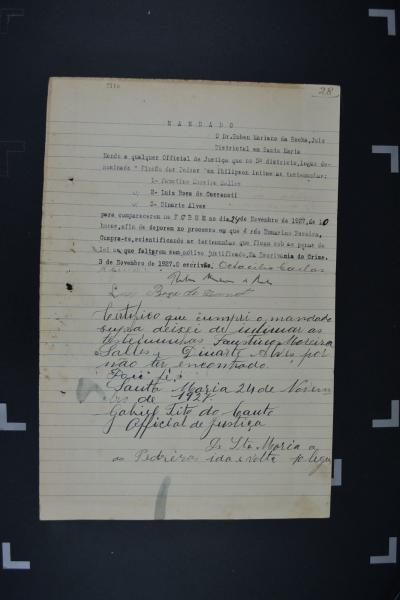 28
Tito
M A N D A D O
O Dr. Ruben Mariano da Rocha, Juiz
Districtal em Santa Maria
Mando a qualquer Official de Justiça que no 5º districto, logar de-
nominado " dos " em Philipson intime as testemunhas:
1- Faustino Moreira Salles
2- Luiz Bose de
3- Dinarte Alves
para comparecerem no F O R U M no dia 24 de Novembro de 1927, ás 10
horas, afim de deporem no processo em que é réo
Cumpra-se, scientificando as testemunhas que ficam sob as penas da
lei se que faltarem sem motivo justificado. Da Escrivania do Crime.
3 de Novembro de 1927. O escrivão, Octacilio
Luiz Bose de
Certifico que cumpri o mandado
supra deixei de intimar as
testemunhas Faustino Moreira
Salles e Dinarte Alves por
não ter encontrado.
Dou fé.
Santa Maria 24 de Novem
bro de 1927
Gabriel Tito do Canto
Official de Justiça
De Sta Maria a
as Pedreiras ida e volta 10 legu